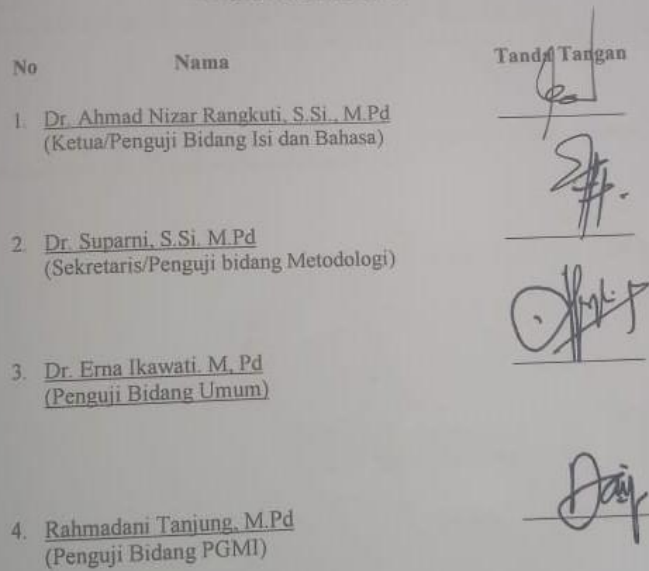 No Nama Tanda Tangan
1. Dr. Ahmad Nizar Rangkuti, S.Si., M.Pd
(Ketua/Penguji Bidang Isi dan Bahasa)
2. Dr. Suparni, S.Si. M.Pd
(Sekretaris/Penguji bidang Metodologi)
3. Dr. Erna Ikawati. M, Pd
(Penguji Bidang Umum)
4. Rahmadani Tanjung, M.Pd
(Penguji Bidang PGMI)